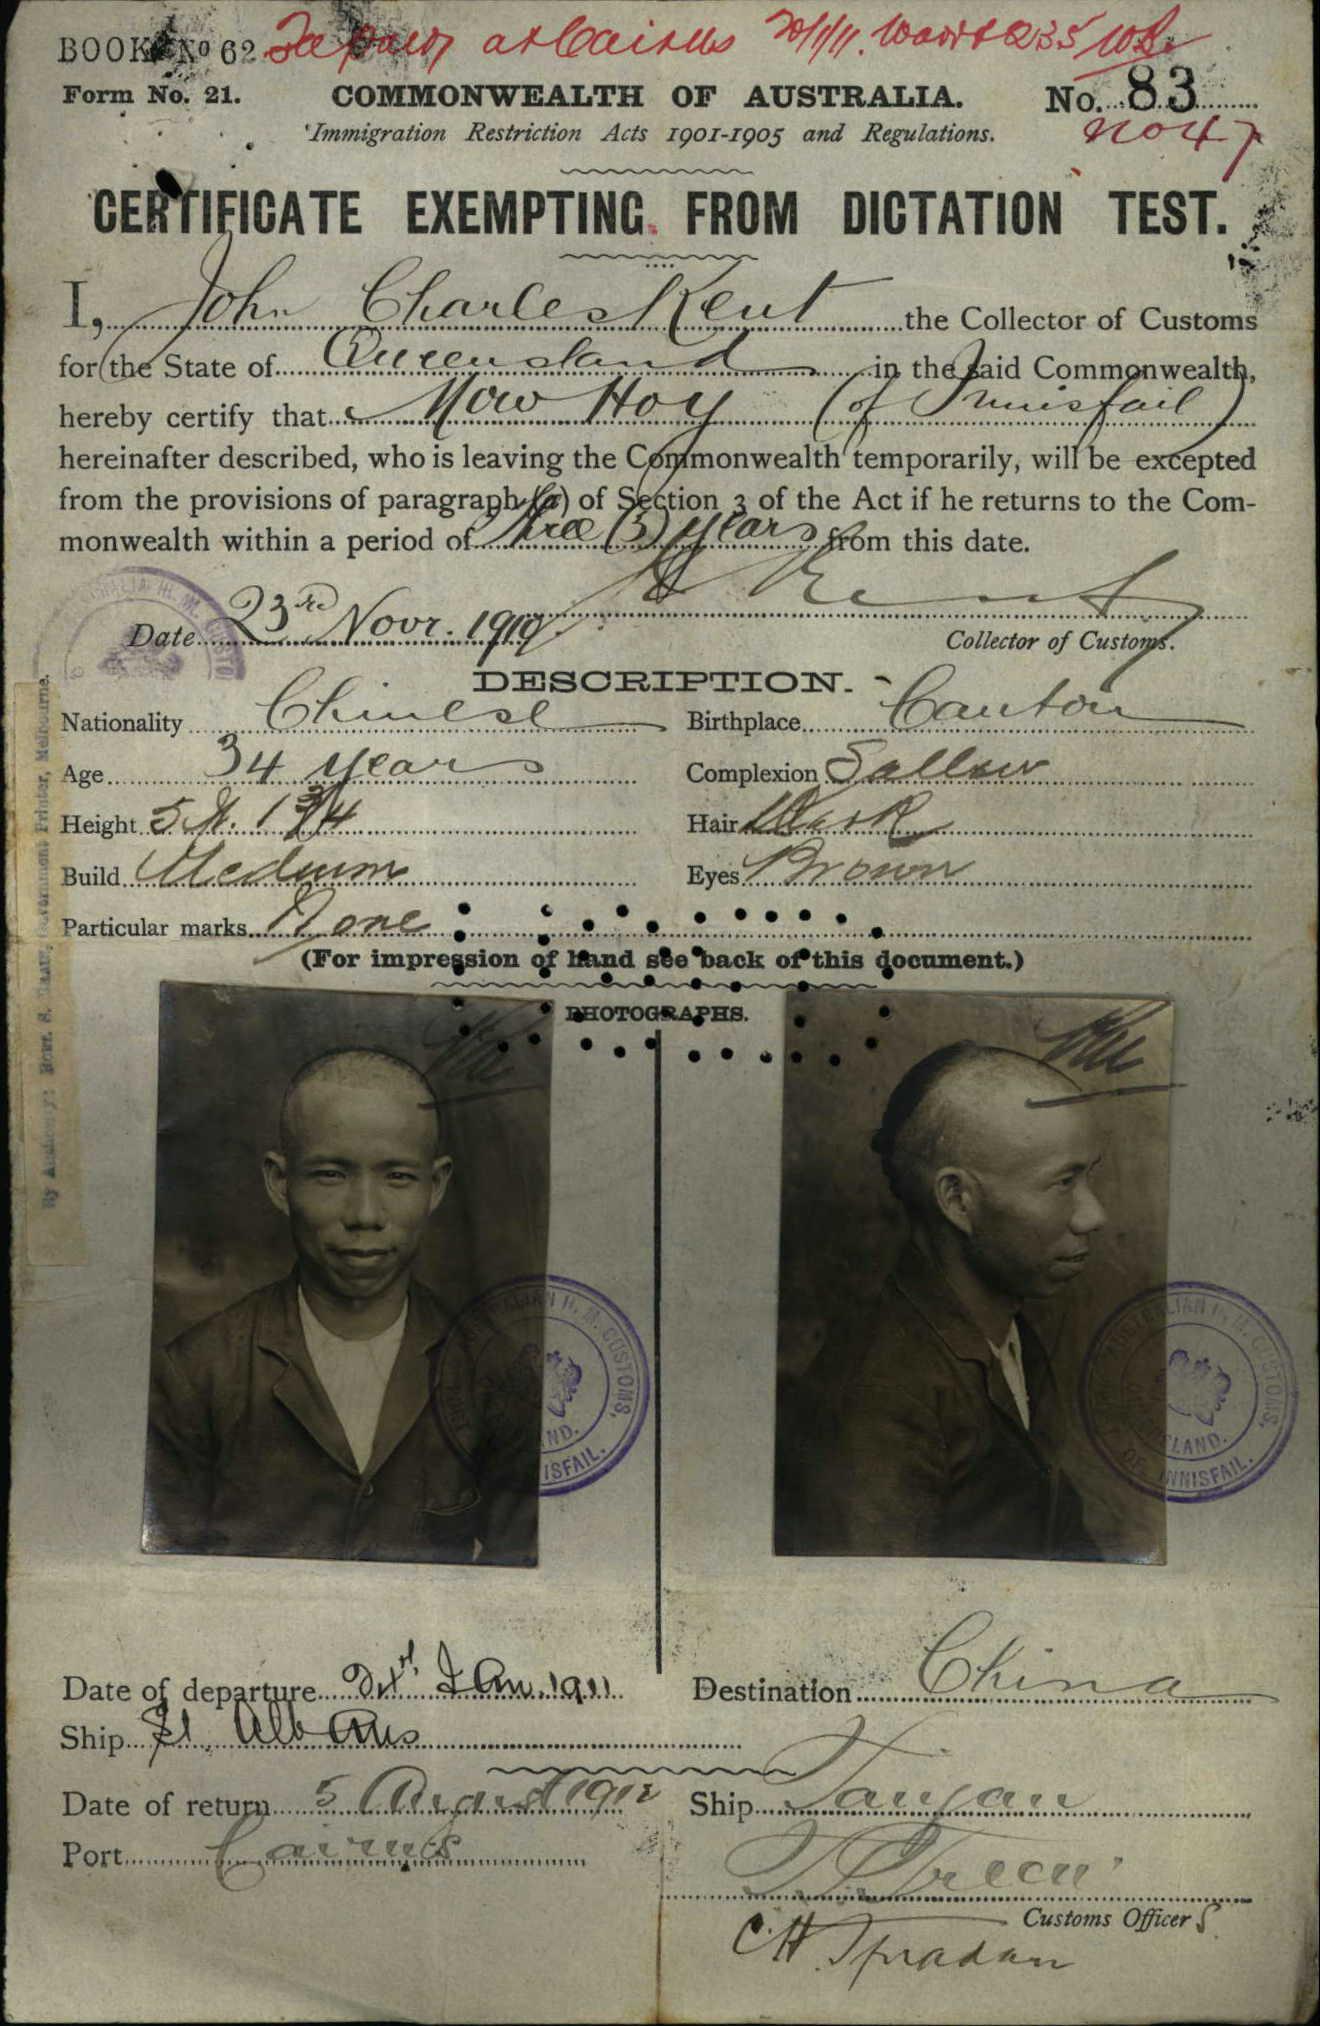 BOOK No 62 at Cairns 20/1/11.
Form No. 21. COMMONWEALTH OF AUSTRALIA. No. 83
Immigration Restriction Acts 1901-1905 and Regulations. No 47
CERTIFICATE EXEMPTING FROM DICTATION TEST.
I, John Charles Kent the Collector of Customs
for the State of Queensland in the said Commonwealth,
hereby certify that Mow Hoy (of Innisfail)
hereinafter described, who is leaving the Commonwealth temporarily, will be excepted
from the provisions of paragraph (a) of Section 3 of the Act if he returns to the Com-
monwealth within a period of three (3) years from this date.
Kent
Date 23rd Novr. 1910 Collector of Customs.
DESCRIPTION.
Nationality Chinese Birthplace Canton
Age 34 years Complexion Sallow
Height 5 ft. 1 3/4 Hair Dark
Build Medium Eyes Brown
Particular marks None
(For impression of hand see back of this document.)
PHOTOGRAPHS.
AUSTRALIAN H. M. CUSTOMS,
LAND.
INNISFAIL.
AUSTRALIAN H. M. CUSTOMS,
LAND.
OF INNISFAIL.
Date of departure Jan. 1911 Destination China
Ship St. Albans
Date of return 5 August 1912 Ship Taiyuan
Port Cairns
Customs Officer S